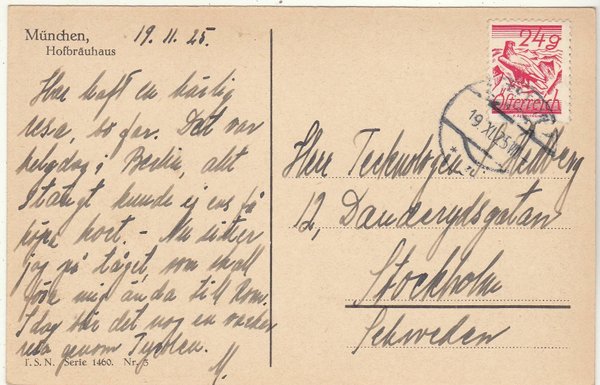 München,
Hofbräuhaus
19.11.25.
Har haft en härlig
resa, so far. Det var
helgdag i Berlin, allt
stängt kunde ej ens få
köpa kort. - Nu sitter
jag på tåget, som skall
föra mig ända till Rom.
I dag blir det nog en vacker
resa genom Tyrolen.
M.
T.S.N. Serie 1460. Nr. 5
24g
Österreich
19.XI.25
Herr Teknologen
12, Danderydsgatan
Stockholm
Schweden